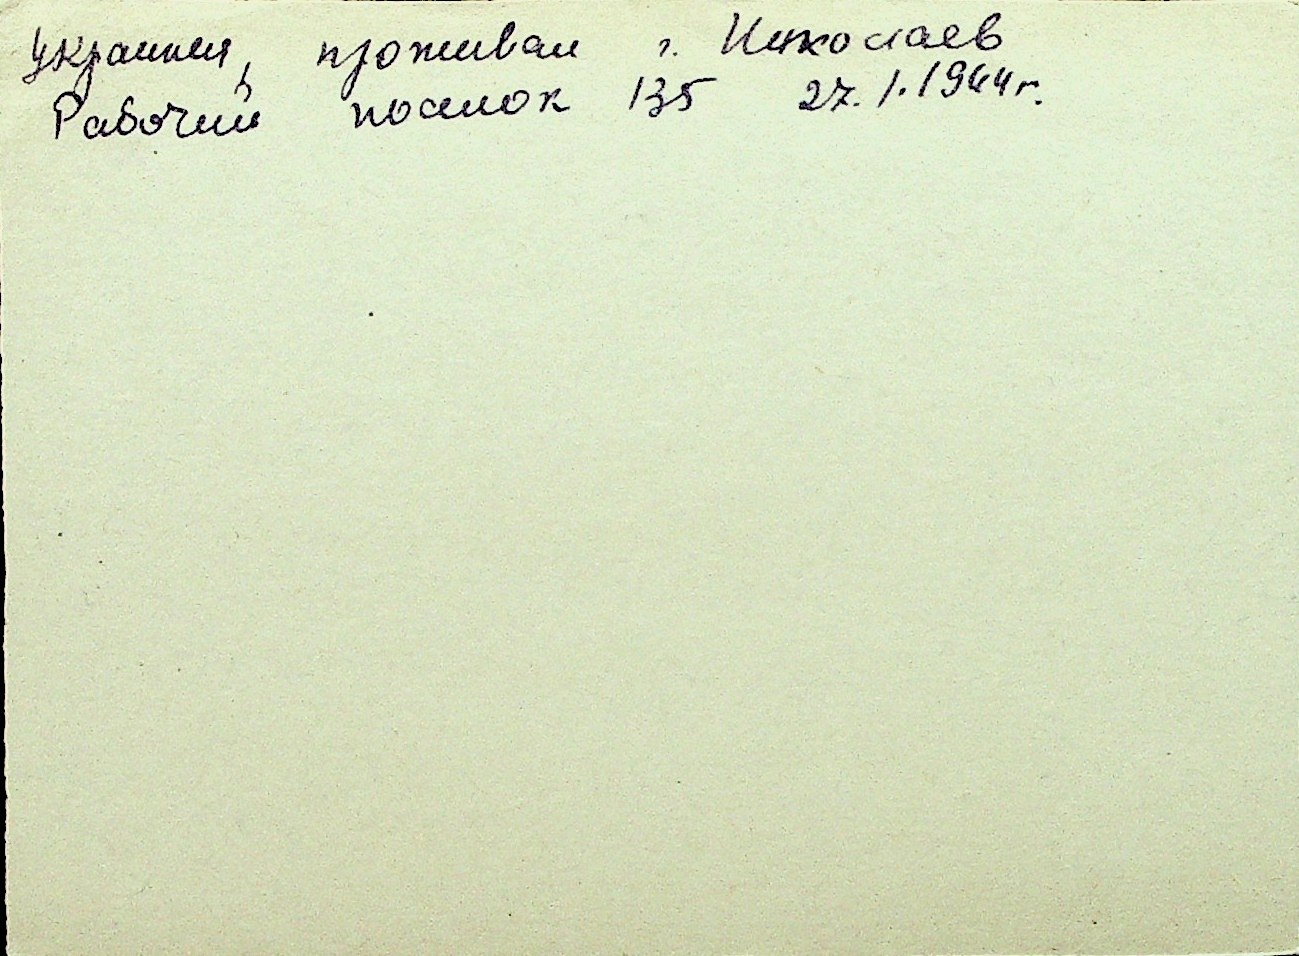 украинец, проживал г. Николаев
Рабочий поселок 135 27.1.1944г.